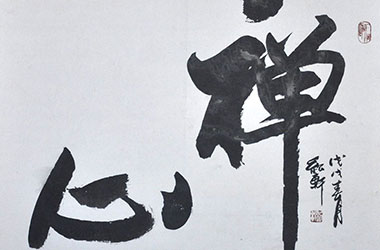 禅
心
戊戌春月